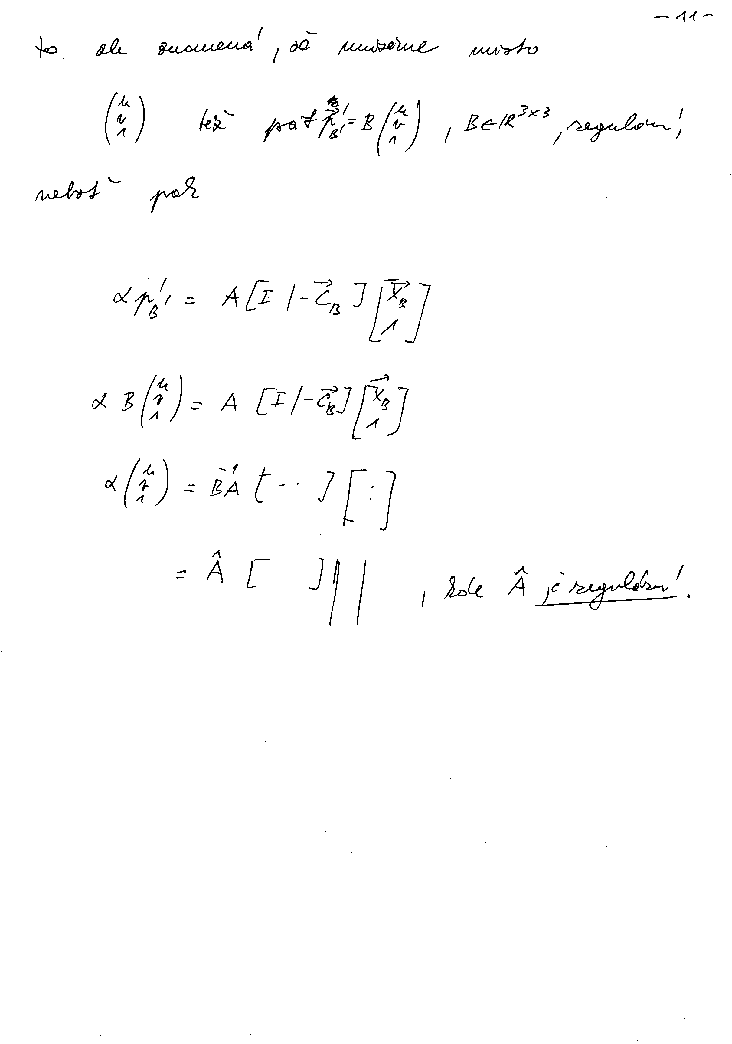 - 11 -
to ale znamená, že můžeme místo
(u v 1) též psát p⃗'_B' = B (u v 1), B ∈ R^{3×3}, regulární,
neboť pak
α p'_B' = A [I | -C⃗_B] [X⃗_B 1]
α B (u v 1) = A [I | -C⃗_B] [X⃗_B 1]
α (u v 1) = B^{-1} A [ · · · ] [ : ]
= Â [ ] | | , kde Â je regulární.